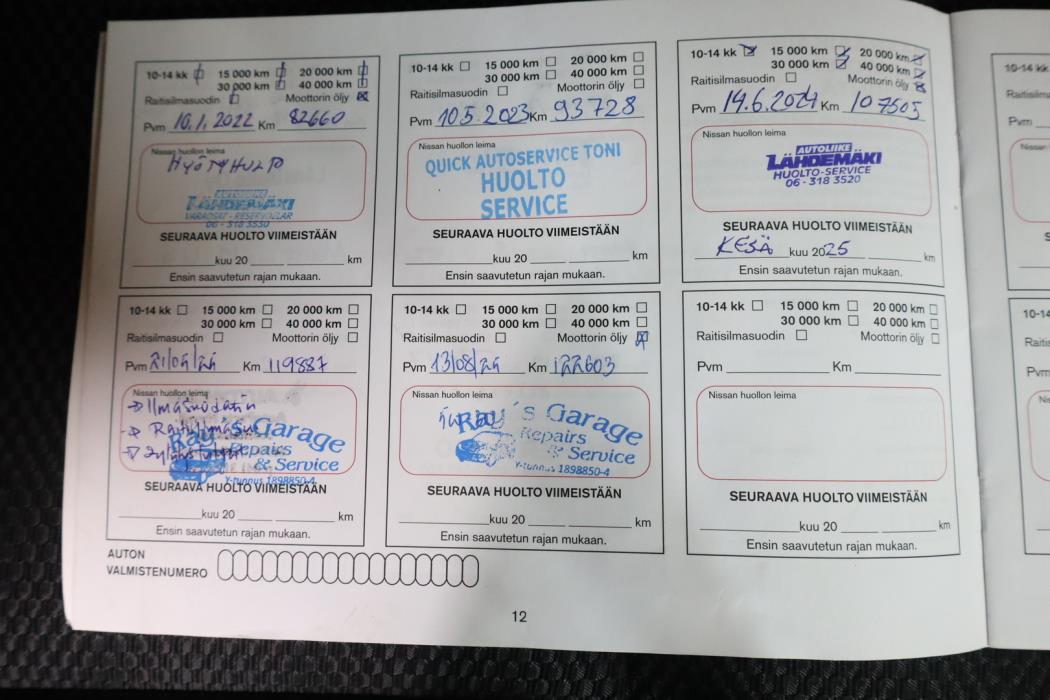 10-14 kk 15 000 km 20 000 km
30 000 km 40 000 km
Raitisilmasuodin Moottorin öljy
Pvm 10.1.2022 Km 82660
Nissan huollon leima
HYÖTYHUOLTO
AUTOLIIKE
LÄHDEMÄKI
VARAOSAT - RESERVDELAR
06 - 318 3530
SEURAAVA HUOLTO VIIMEISTÄÄN
kuu 20 km
Ensin saavutetun rajan mukaan.
10-14 kk 15 000 km 20 000 km
30 000 km 40 000 km
Raitisilmasuodin Moottorin öljy
Pvm 10.5.2023 Km 93728
Nissan huollon leima
QUICK AUTOSERVICE TONI
HUOLTO
SERVICE
SEURAAVA HUOLTO VIIMEISTÄÄN
kuu 20 km
Ensin saavutetun rajan mukaan.
10-14 kk 15 000 km 20 000 km
30 000 km 40 000 km
Raitisilmasuodin Moottorin öljy
Pvm 14.6.2024 Km 107505
Nissan huollon leima
AUTOLIIKE
LÄHDEMÄKI
HUOLTO-SERVICE
06 - 318 3520
SEURAAVA HUOLTO VIIMEISTÄÄN
KESÄ kuu 2025 km
Ensin saavutetun rajan mukaan.
10-14 kk 15 000 km 20 000 km
30 000 km 40 000 km
Raitisilmasuodin Moottorin öljy
Pvm Km 119887
Nissan huollon leima
Ray's Garage
Repairs
& Service
Y-tunnus 1898850-4
SEURAAVA HUOLTO VIIMEISTÄÄN
kuu 20 km
Ensin saavutetun rajan mukaan.
10-14 kk 15 000 km 20 000 km
30 000 km 40 000 km
Raitisilmasuodin Moottorin öljy
Pvm Km 122603
Nissan huollon leima
Ray's Garage
Repairs
& Service
Y-tunnus 1898850-4
SEURAAVA HUOLTO VIIMEISTÄÄN
kuu 20 km
Ensin saavutetun rajan mukaan.
10-14 kk 15 000 km 20 000 km
30 000 km 40 000 km
Raitisilmasuodin Moottorin öljy
Pvm Km
Nissan huollon leima
SEURAAVA HUOLTO VIIMEISTÄÄN
kuu 20 km
Ensin saavutetun rajan mukaan.
AUTON
VALMISTENUMERO
12